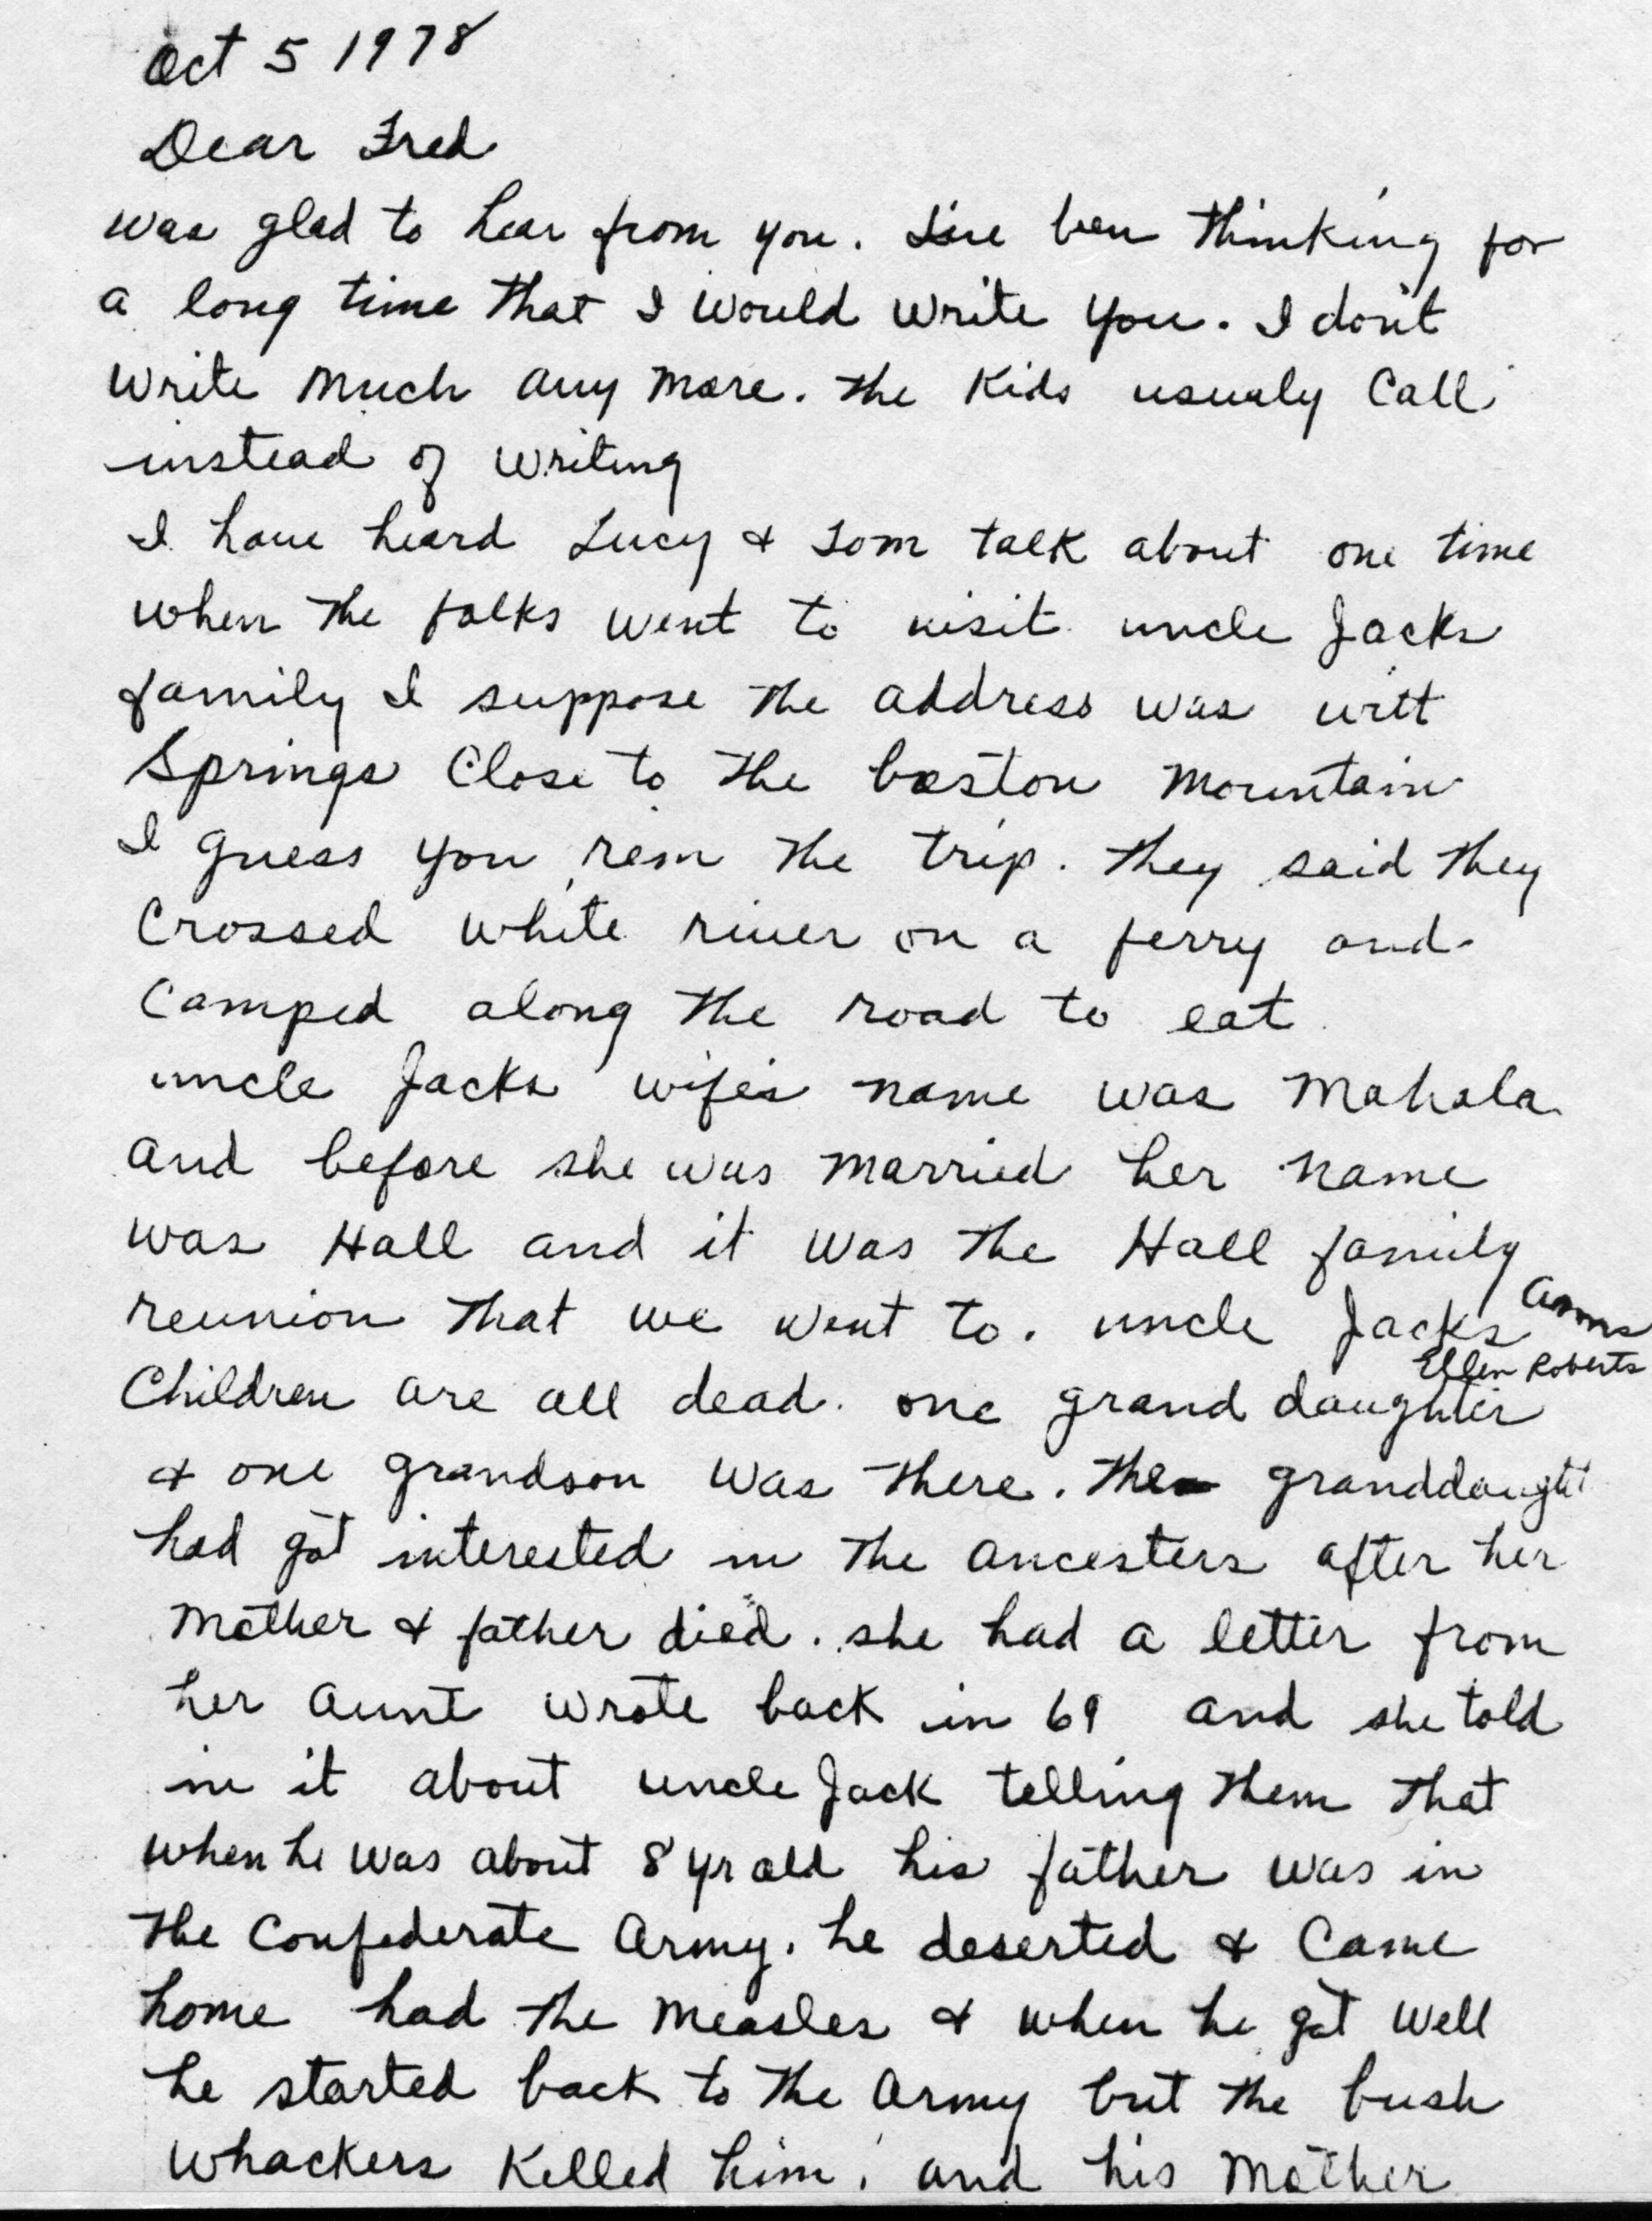 Oct 5 1978
Dear Fred
was glad to hear from you. I've ben thinking for
a long time that I would write you. I don't
write much any more. the Kids usualy Call
instead of writing
I have heard Lucy & Tom talk about one time
when the folks went to visit uncle Jacks
family I suppose the address was witt
Springs Close to the boston mountain
I guess you rem the trip. they said they
Crossed white river on a ferry and
Camped along the road to eat
uncle Jacks wife's name was Mahala
and before she was married her name
was Hall and it was the Hall family
reunion that we went to. uncle Jacks
Ellen Roberts
Children are all dead. one grand daughter
& one grandson was there. the granddaught
had got interested in the ancesters after her
Mother & father died. she had a letter from
her aunt wrote back in 69 and she told
in it about uncle Jack telling them that
when he was about 8 yr old his father was in
the Confederate Army. he deserted & Came
home had the measles & when he got well
he started back to the Army but the bush
whackers Killed him. and his Mother